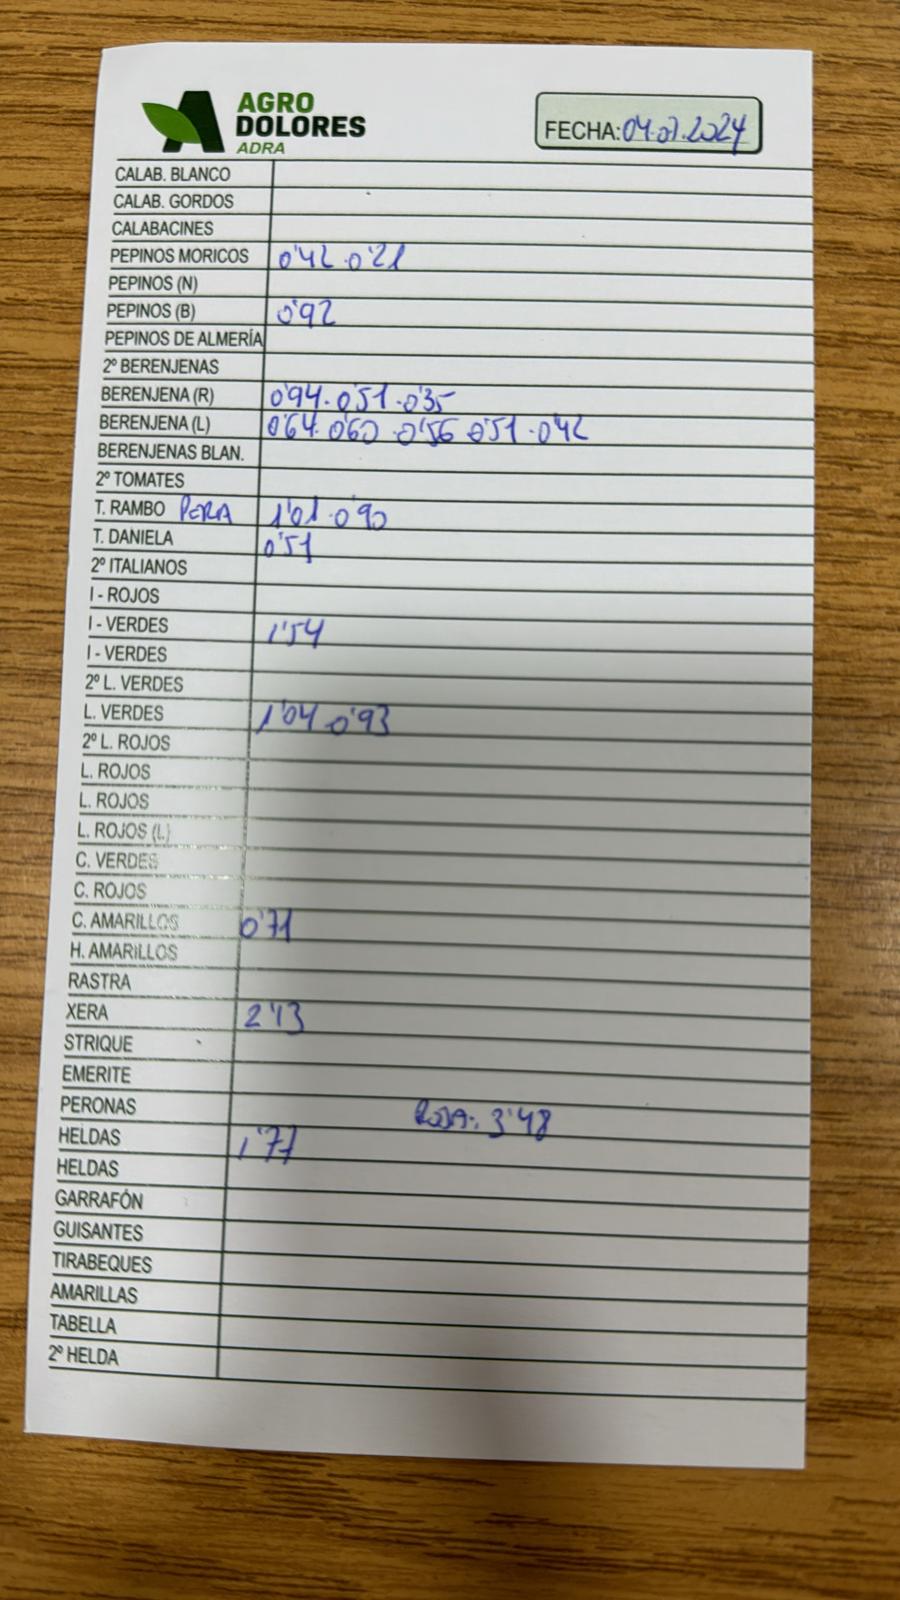 AGRO
DOLORES
ADRA
FECHA: 04.07.2024
CALAB. BLANCO
CALAB. GORDOS
CALABACINES
PEPINOS MORICOS 0'42 · 0'21
PEPINOS (N)
PEPINOS (B) 0'92
PEPINOS DE ALMERÍA
2º BERENJENAS
BERENJENA (R) 0'94 · 0'51 · 0'35
BERENJENA (L) 0'64 · 0'60 · 0'56 0'51 · 0'42
BERENJENAS BLAN.
2º TOMATES
T. RAMBO PERA 1'01 · 0'90
T. DANIELA 0'51
2º ITALIANOS
I - ROJOS
I - VERDES 1'54
I - VERDES
2º L. VERDES
L. VERDES 1'04 · 0'93
2º L. ROJOS
L. ROJOS
L. ROJOS
L. ROJOS (L)
C. VERDES
C. ROJOS
C. AMARILLOS 0'71
H. AMARILLOS
RASTRA
XERA 2'13
STRIQUE
EMERITE
PERONAS ROJA: 3'48
HELDAS 1'77
HELDAS
GARRAFÓN
GUISANTES
TIRABEQUES
AMARILLAS
TABELLA
2º HELDA